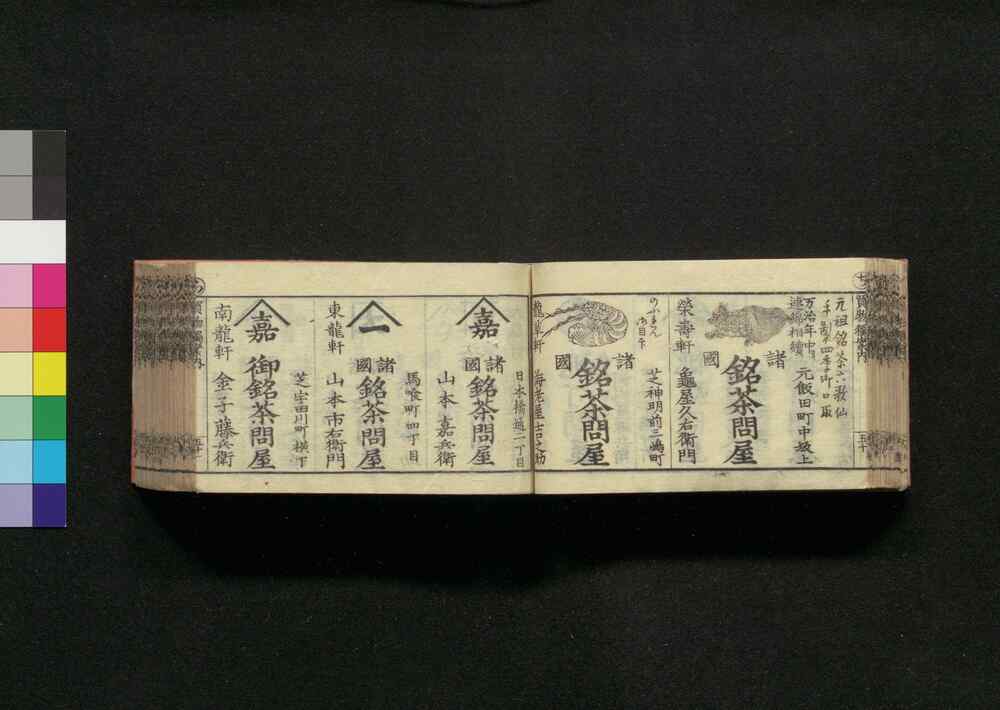 元祖銘茶六歌仙
万治年中ヨリ
連綿相續
元飯田町中坂上
諸國
銘茶問屋
榮壽軒
龜屋久右衛門
芝神明前三嶋町
諸國
銘茶問屋
海老屋吉之助
日本橋通二丁目
嘉
諸國
銘茶問屋
山本嘉兵衛
馬喰町四丁目
一
諸國
銘茶問屋
東龍軒
山本市右衛門
芝宇田川町横丁
嘉
御銘茶問屋
南龍軒
金子藤兵衛